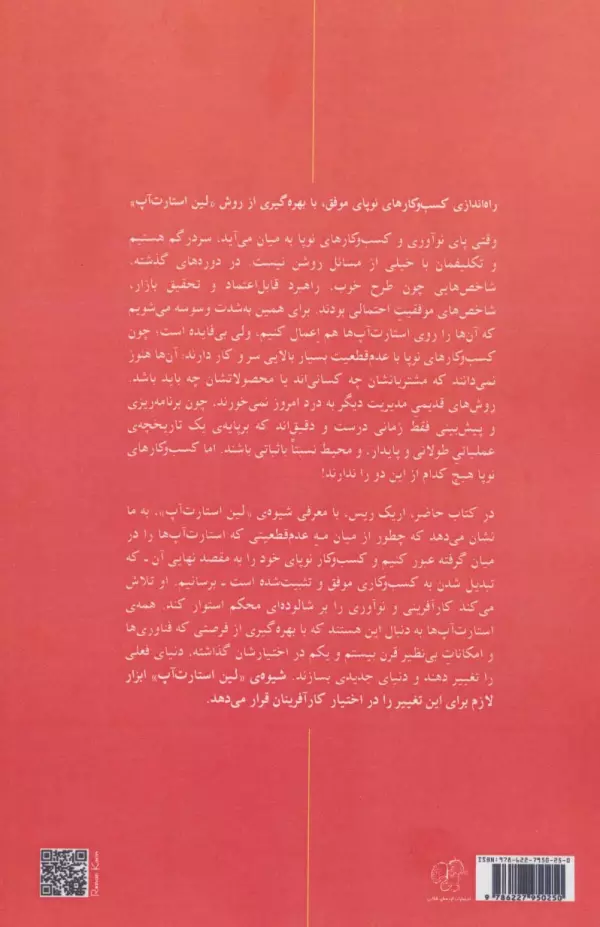 راه‌اندازی کسب‌وکارهای نوپای موفق، با بهره‌گیری از روش «لین استارت‌آپ»
وقتی پای نوآوری و کسب‌وکارهای نوپا به میان می‌آید، سردرگم هستیم
و تکلیفمان با خیلی از مسائل روشن نیست. در دوره‌های گذشته،
شاخص‌هایی چون طرح خوب، راهبرد قابل‌اعتماد و تحقیق بازار،
شاخص‌های موفقیتِ احتمالی بودند. برای همین به‌شدت وسوسه می‌شویم
که آن‌ها را روی استارت‌آپ‌ها هم اِعمال کنیم، ولی بی‌فایده است؛ چون
کسب‌وکارهای نوپا با عدم‌قطعیت بسیار بالایی سر و کار دارند: آن‌ها هنوز
نمی‌دانند که مشتریانشان چه کسانی‌اند یا محصولاتشان چه باید باشد.
روش‌های قدیمیِ مدیریت دیگر به درد امروز نمی‌خورند، چون برنامه‌ریزی
و پیش‌بینی فقط زمانی درست و دقیق‌اند که برپایه‌ی یک تاریخچه‌ی
عملیاتیِ طولانی و پایدار، و محیط نسبتاً باثباتی باشند. اما کسب‌وکارهای
نوپا هیچ کدام از این دو را ندارند!
در کتاب حاضر، اریک ریس، با معرفی شیوه‌ی «لین استارت‌آپ»، به ما
نشان می‌دهد که چطور از میان مهِ عدم‌قطعیتی که استارت‌آپ‌ها را در
میان گرفته عبور کنیم و کسب‌وکار نوپای خود را به مقصد نهایی آن ـ که
تبدیل شدن به کسب‌وکاری موفق و تثبیت‌شده است ـ برسانیم. او تلاش
می‌کند کارآفرینی و نوآوری را بر شالوده‌ای محکم استوار کند. همه‌ی
استارت‌آپ‌ها به دنبال این هستند که با بهره‌گیری از فرصتی که فناوری‌ها
و امکاناتِ بی‌نظیر قرن بیستم و یکم در اختیارشان گذاشته، دنیای فعلی
را تغییر دهند و دنیای جدیدی بسازند. شیوه‌ی «لین استارت‌آپ» ابزار
لازم برای این تغییر را در اختیار کارآفرینان قرار می‌دهد.
ISBN: 978-622-7950-25-0
9 786227 950250